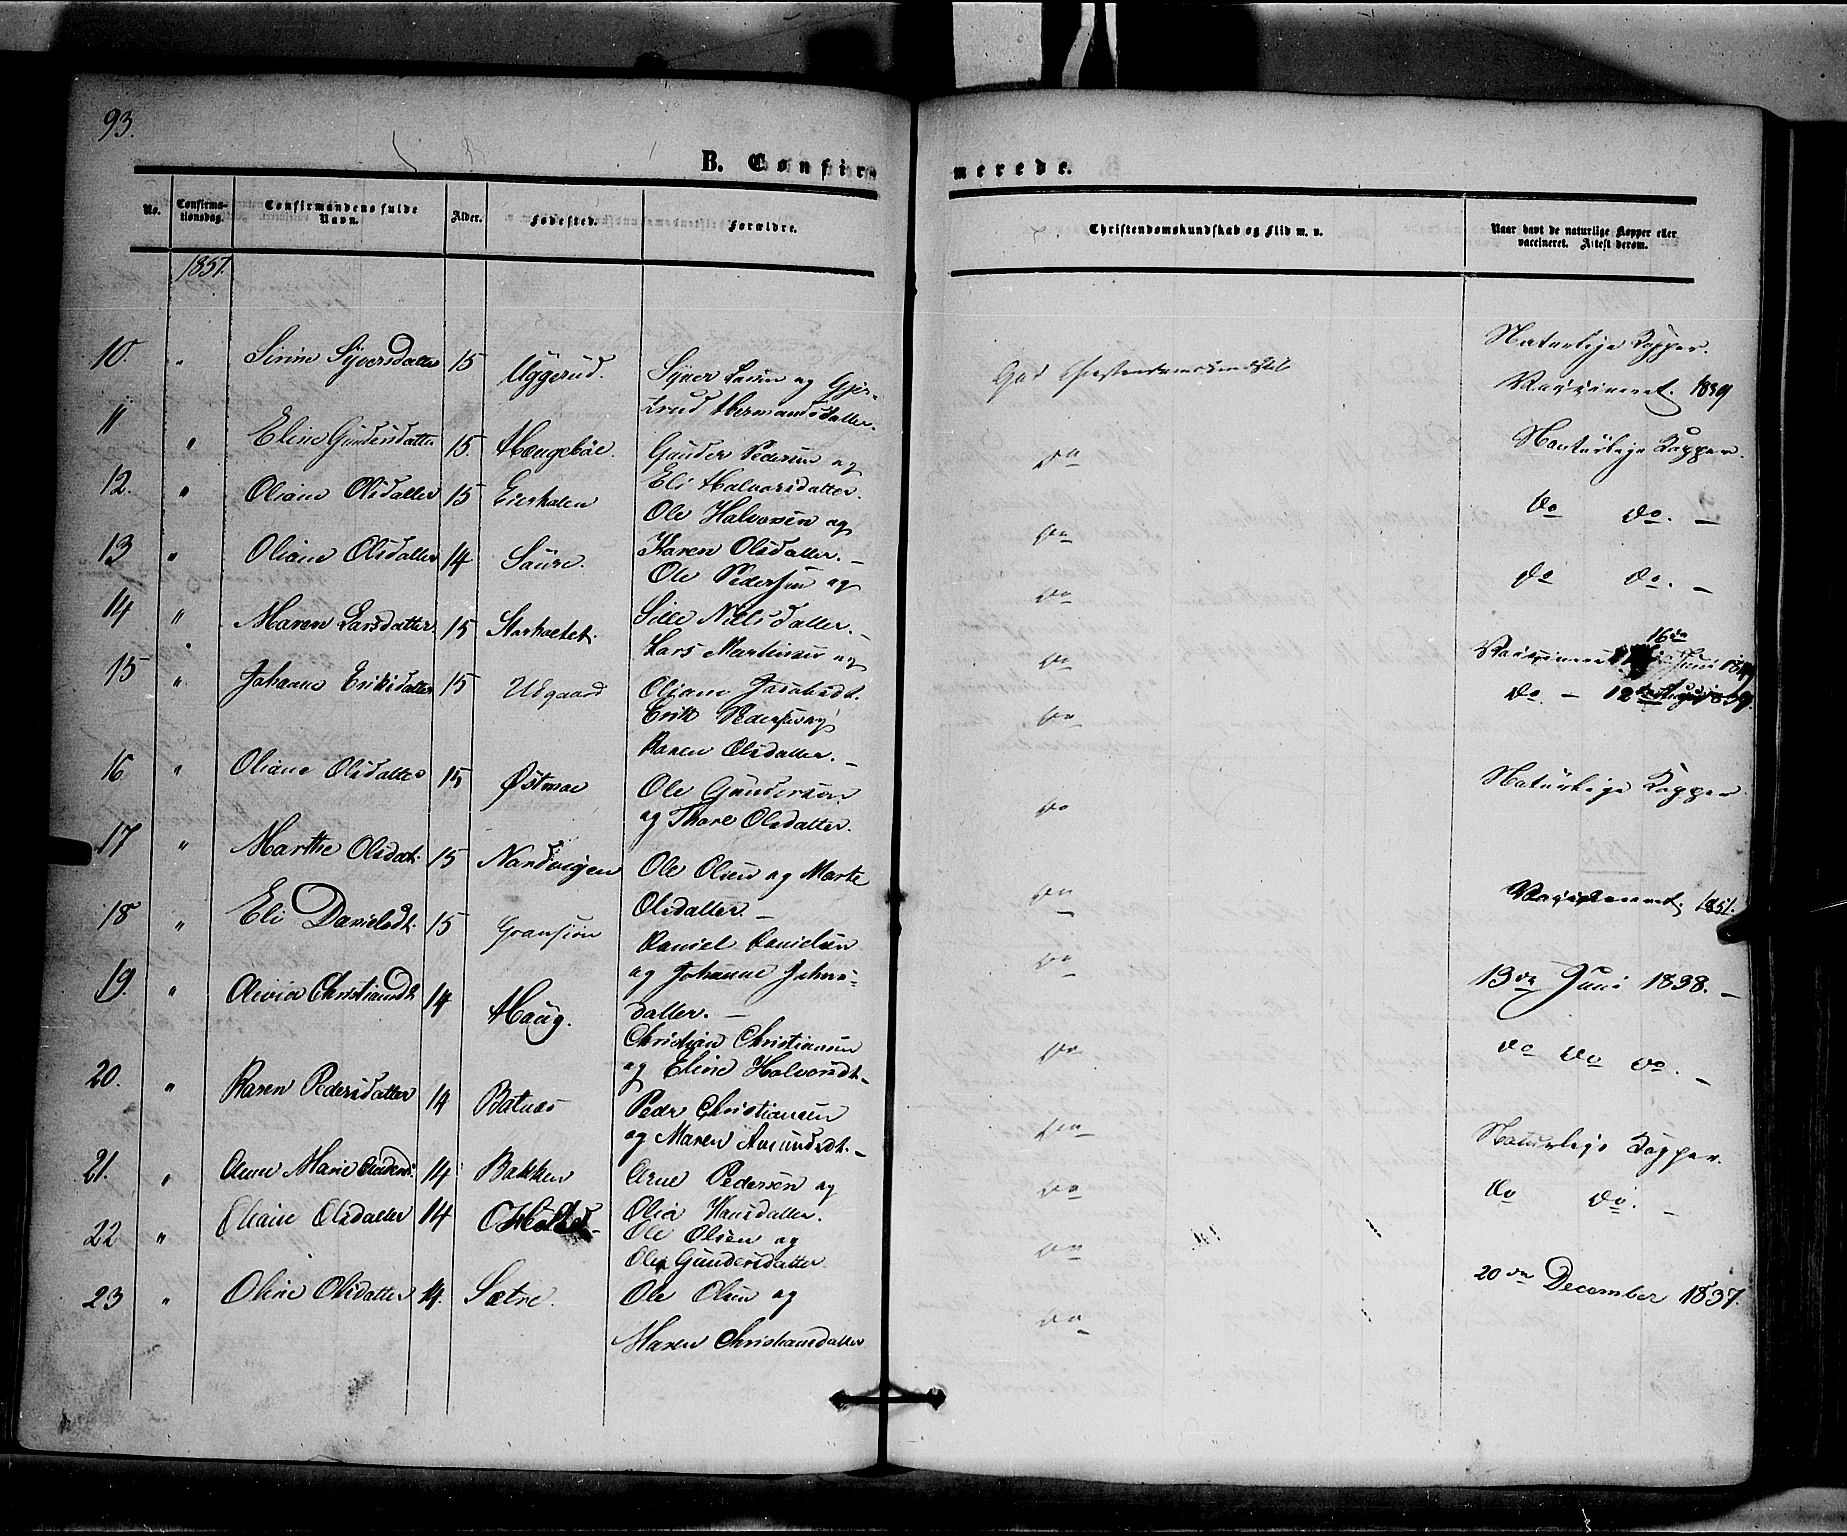 93.
B. Confirmerede.
No. Confirmationsdag. Confirmandens fulde Navn. Alder. Fødested. Forældre. Christendomskundskab og Flid m. v. Naar havt de naturlige Kopper eller vaccineret. Attest derom.
1851.
10. " Sirine Syversdatter 15 Uggerud. Syver Larsen og Gjer- God Christendomskundskab Naturlige Kopper.
trud Hermandsdatter. Vaccineret. 1839
11 " Eline Gundersdatter 15. Hængebøe. Gunder Pedersen og do Naturlige Kopper.
Eli Halvorsdatter.
12. " Oliane Olsdatter 15 Ole Halvorsen og do do do. —
Karen Olsdatter. —
13 " Oliane Olsdatter 14 Ole Pedersen og do do do. —
Sille Nielsdatter. —
14 " Maren Larsdatter 15 Lars Martinsen og do Vaccineret 16de Juni
Oliane Jacobsdt.
15 " Johane Eriksdatter 15 Udgaard Erik Pedersen og do do. — 12 1839.
Karen Olsdatter. —
16 " Oliane Olsdatter 15 Østmoe Ole Gundersen do Naturlige Kopper
og Thore Olsdatter.
17 " Marthe Olsdat. 15 Nordvigen Ole Olsen og Marte do Vaccineret. 1851.
Olsdatter. —
18 " Eli Danielsdt. 15 Daniel Danielsen do 13de Juni 1838. —
og Johanne Johns-
datter. —
19. " Olivia Christiansdt. 14 Haug. Christian Christiansen do do do do. —
og Eline Halvorsdt. —
20. " Karen Pedersdatter 14 Batnes Peder Christiansen do Naturlige Kopper.
og Maren Amundsdt. —
21. " Anne Marie 14 Bakken Arne Pedersen og do do do. —
Olia Hansdatter.
22 " Oliane Olsdatter 14 Ole Olsen og do
Olea Gundersdatter
23 " Oline Olsdatter 14. Sætre. Ole Olsen og do 20de December 1837.
Maren Christiansdatter